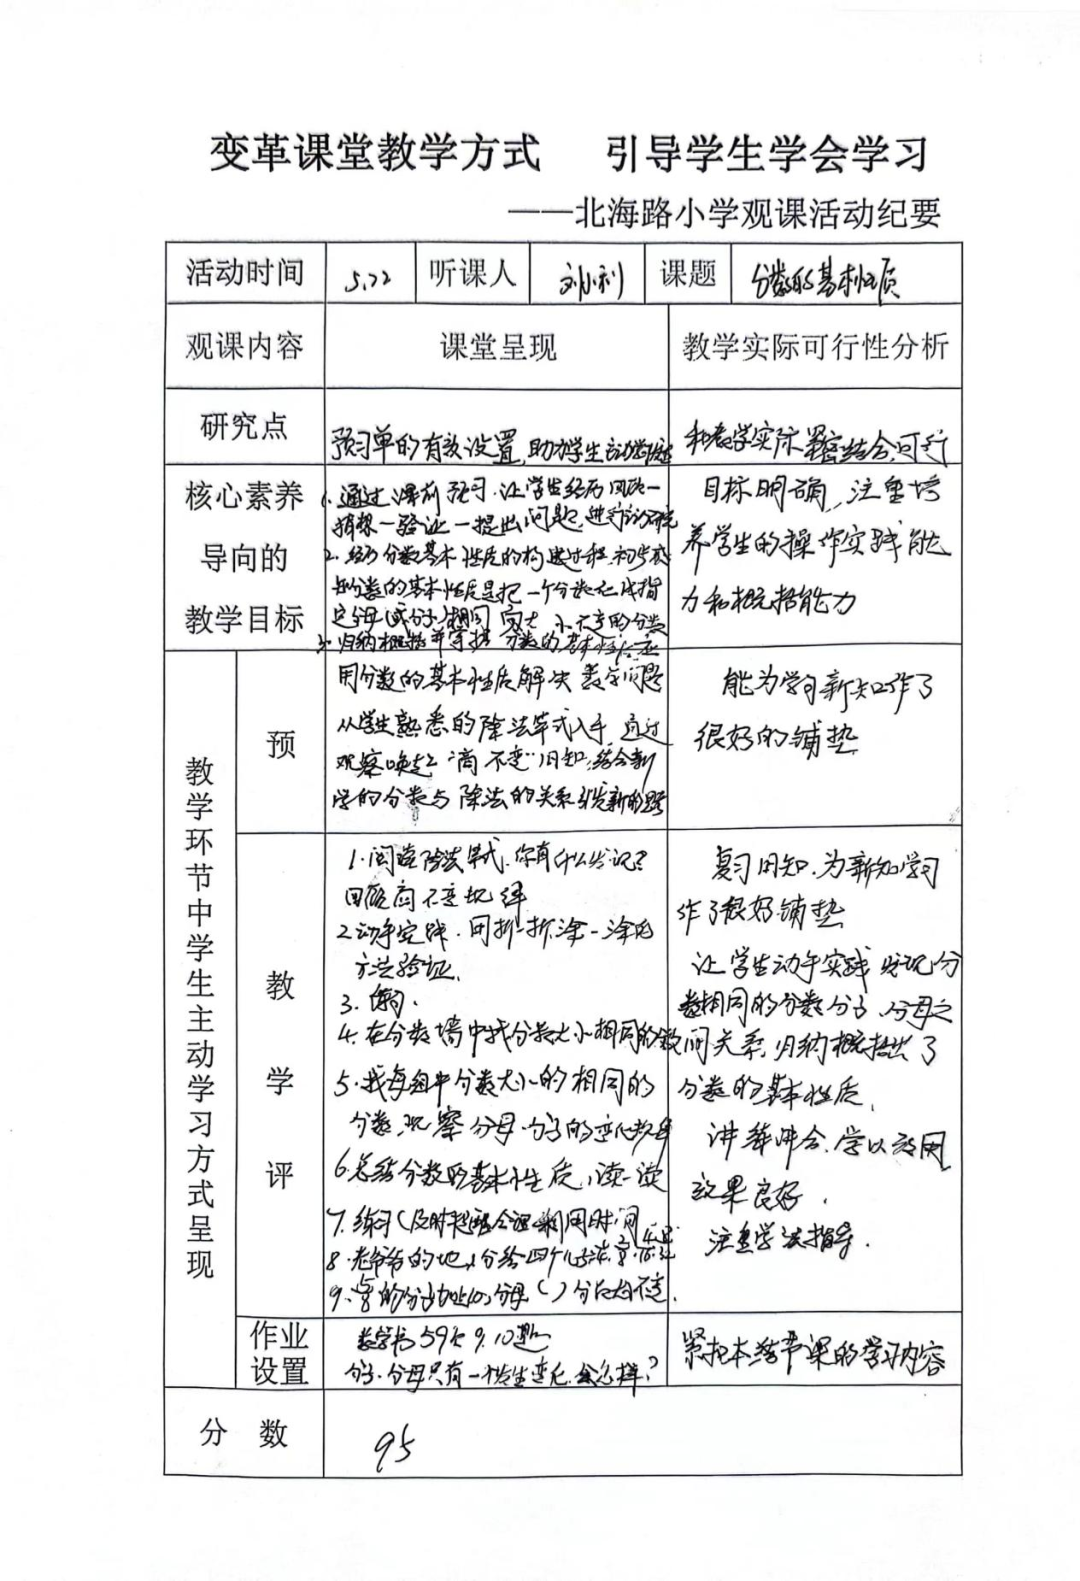 变革课堂教学方式 引导学生学会学习
——北海路小学观课活动纪要
活动时间 5.22 听课人 刘小利 课题 分数的基本性质
观课内容 课堂呈现 教学实际可行性分析
研究点
预习单的有效设置,助力学生
和教学实际紧密结合,可行
核心素养
导向的
教学目标
1.通过课前预习,让学生经历
猜想一验证一提出问题,进行
2.经历分数基本性质的构建过程,初步感
知分数的基本性质是把一个分数化成指
定分母(或分子)相同 大小不变的分数
3.归纳概括并掌握分数的基本性质,
用分数的基本性质解决数学问题
目标明确,注重培
养学生的操作实践能
力和概括能力
教学环节中学生主动学习方式呈现
预
从学生熟悉的除法算式入手,通过
观察唤起“商不变”旧知,结合新
学的分数与除法的关系引发新的
能为学习新知作了
很好的铺垫
教
学
评
1.阅读除法算式,你有什么发现?
回顾商不变规律
2动手实践.用折一折涂一涂的
方法验证.
3.
4.在分数墙中找分数大小相同的
5.找每组中分数大小的相同的
分数,观察分母.分子的变化
6.总结分数的基本性质,读一读
7.练习(及时
8.老爷爷的地,分给四个儿子
9. 的分子 分母( )分数大小不变.
复习旧知.为新知学习
作了很好铺垫
让学生动手实践发现分
数相同的分数分子、分母之
间关系,归纳概括出了
分数的基本性质.
讲练结合.学以致用
效果良好.
注重学法指导.
作业
设置
数学书59页9.10题
分子.分母只有一个发生变化.会怎样?
紧扣本节课的学习内容
分 数
95